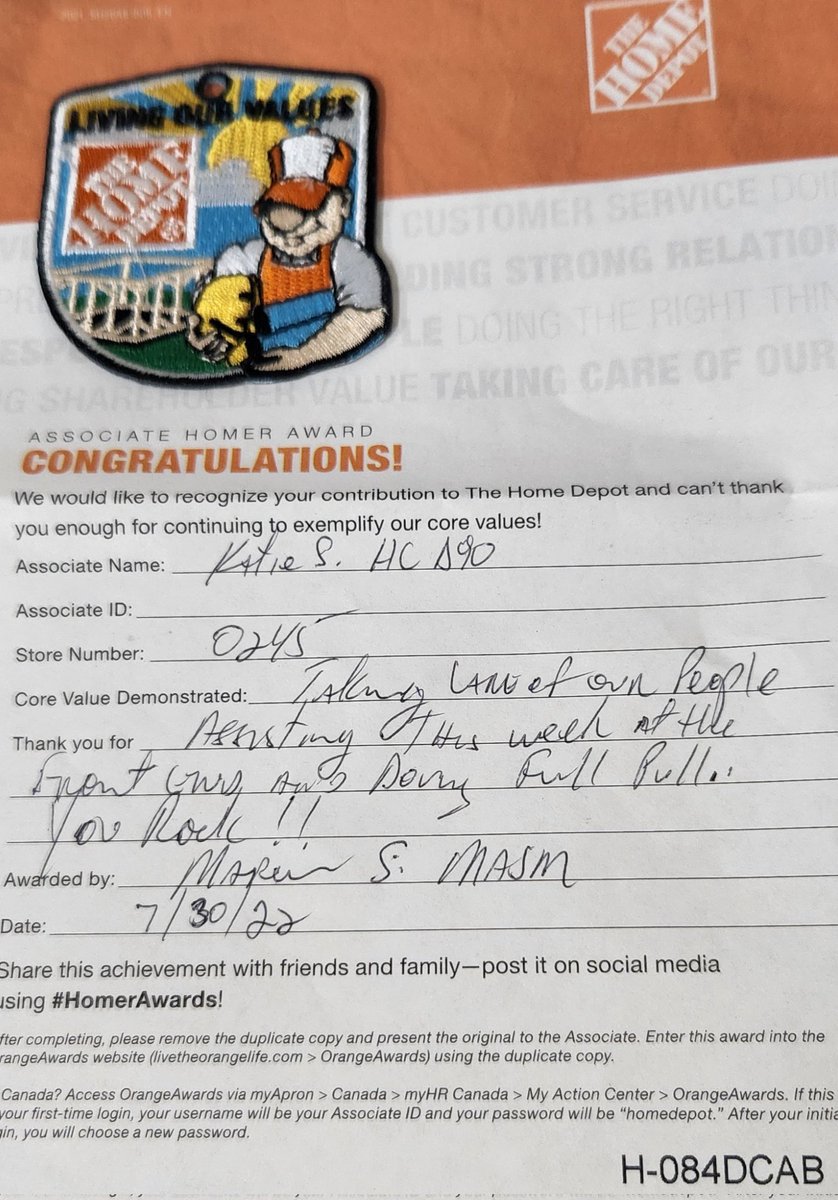 THE
HOME
DEPOT
LIVING OUR VALUES
THE
HOME
DEPOT
CUSTOMER SERVICE DOI
DING STRONG RELATION
LE DOING THE RIGHT THIN
G SHAREHOLDER VALUE TAKING CARE OF OUR
ASSOCIATE HOMER AWARD
CONGRATULATIONS!
We would like to recognize your contribution to The Home Depot and can't thank
you enough for continuing to exemplify our core values!
Associate Name: Katie S. HC D90
Associate ID:
Store Number: 0245
Core Value Demonstrated: Taking Care of our People
Thank you for Assisting This week at the
Front End and Doing Full Pull..
You Rock!!
Awarded by: S. MASM
Date: 7/30/22
Share this achievement with friends and family—post it on social media
using #HomerAwards!
fter completing, please remove the duplicate copy and present the original to the Associate. Enter this award into the
rangeAwards website (livetheorangelife.com > OrangeAwards) using the duplicate copy.
Canada? Access OrangeAwards via myApron > Canada > myHR Canada > My Action Center > OrangeAwards. If this
your first-time login, your username will be your Associate ID and your password will be “homedepot.” After your initia
gin, you will choose a new password.
H-084DCAB